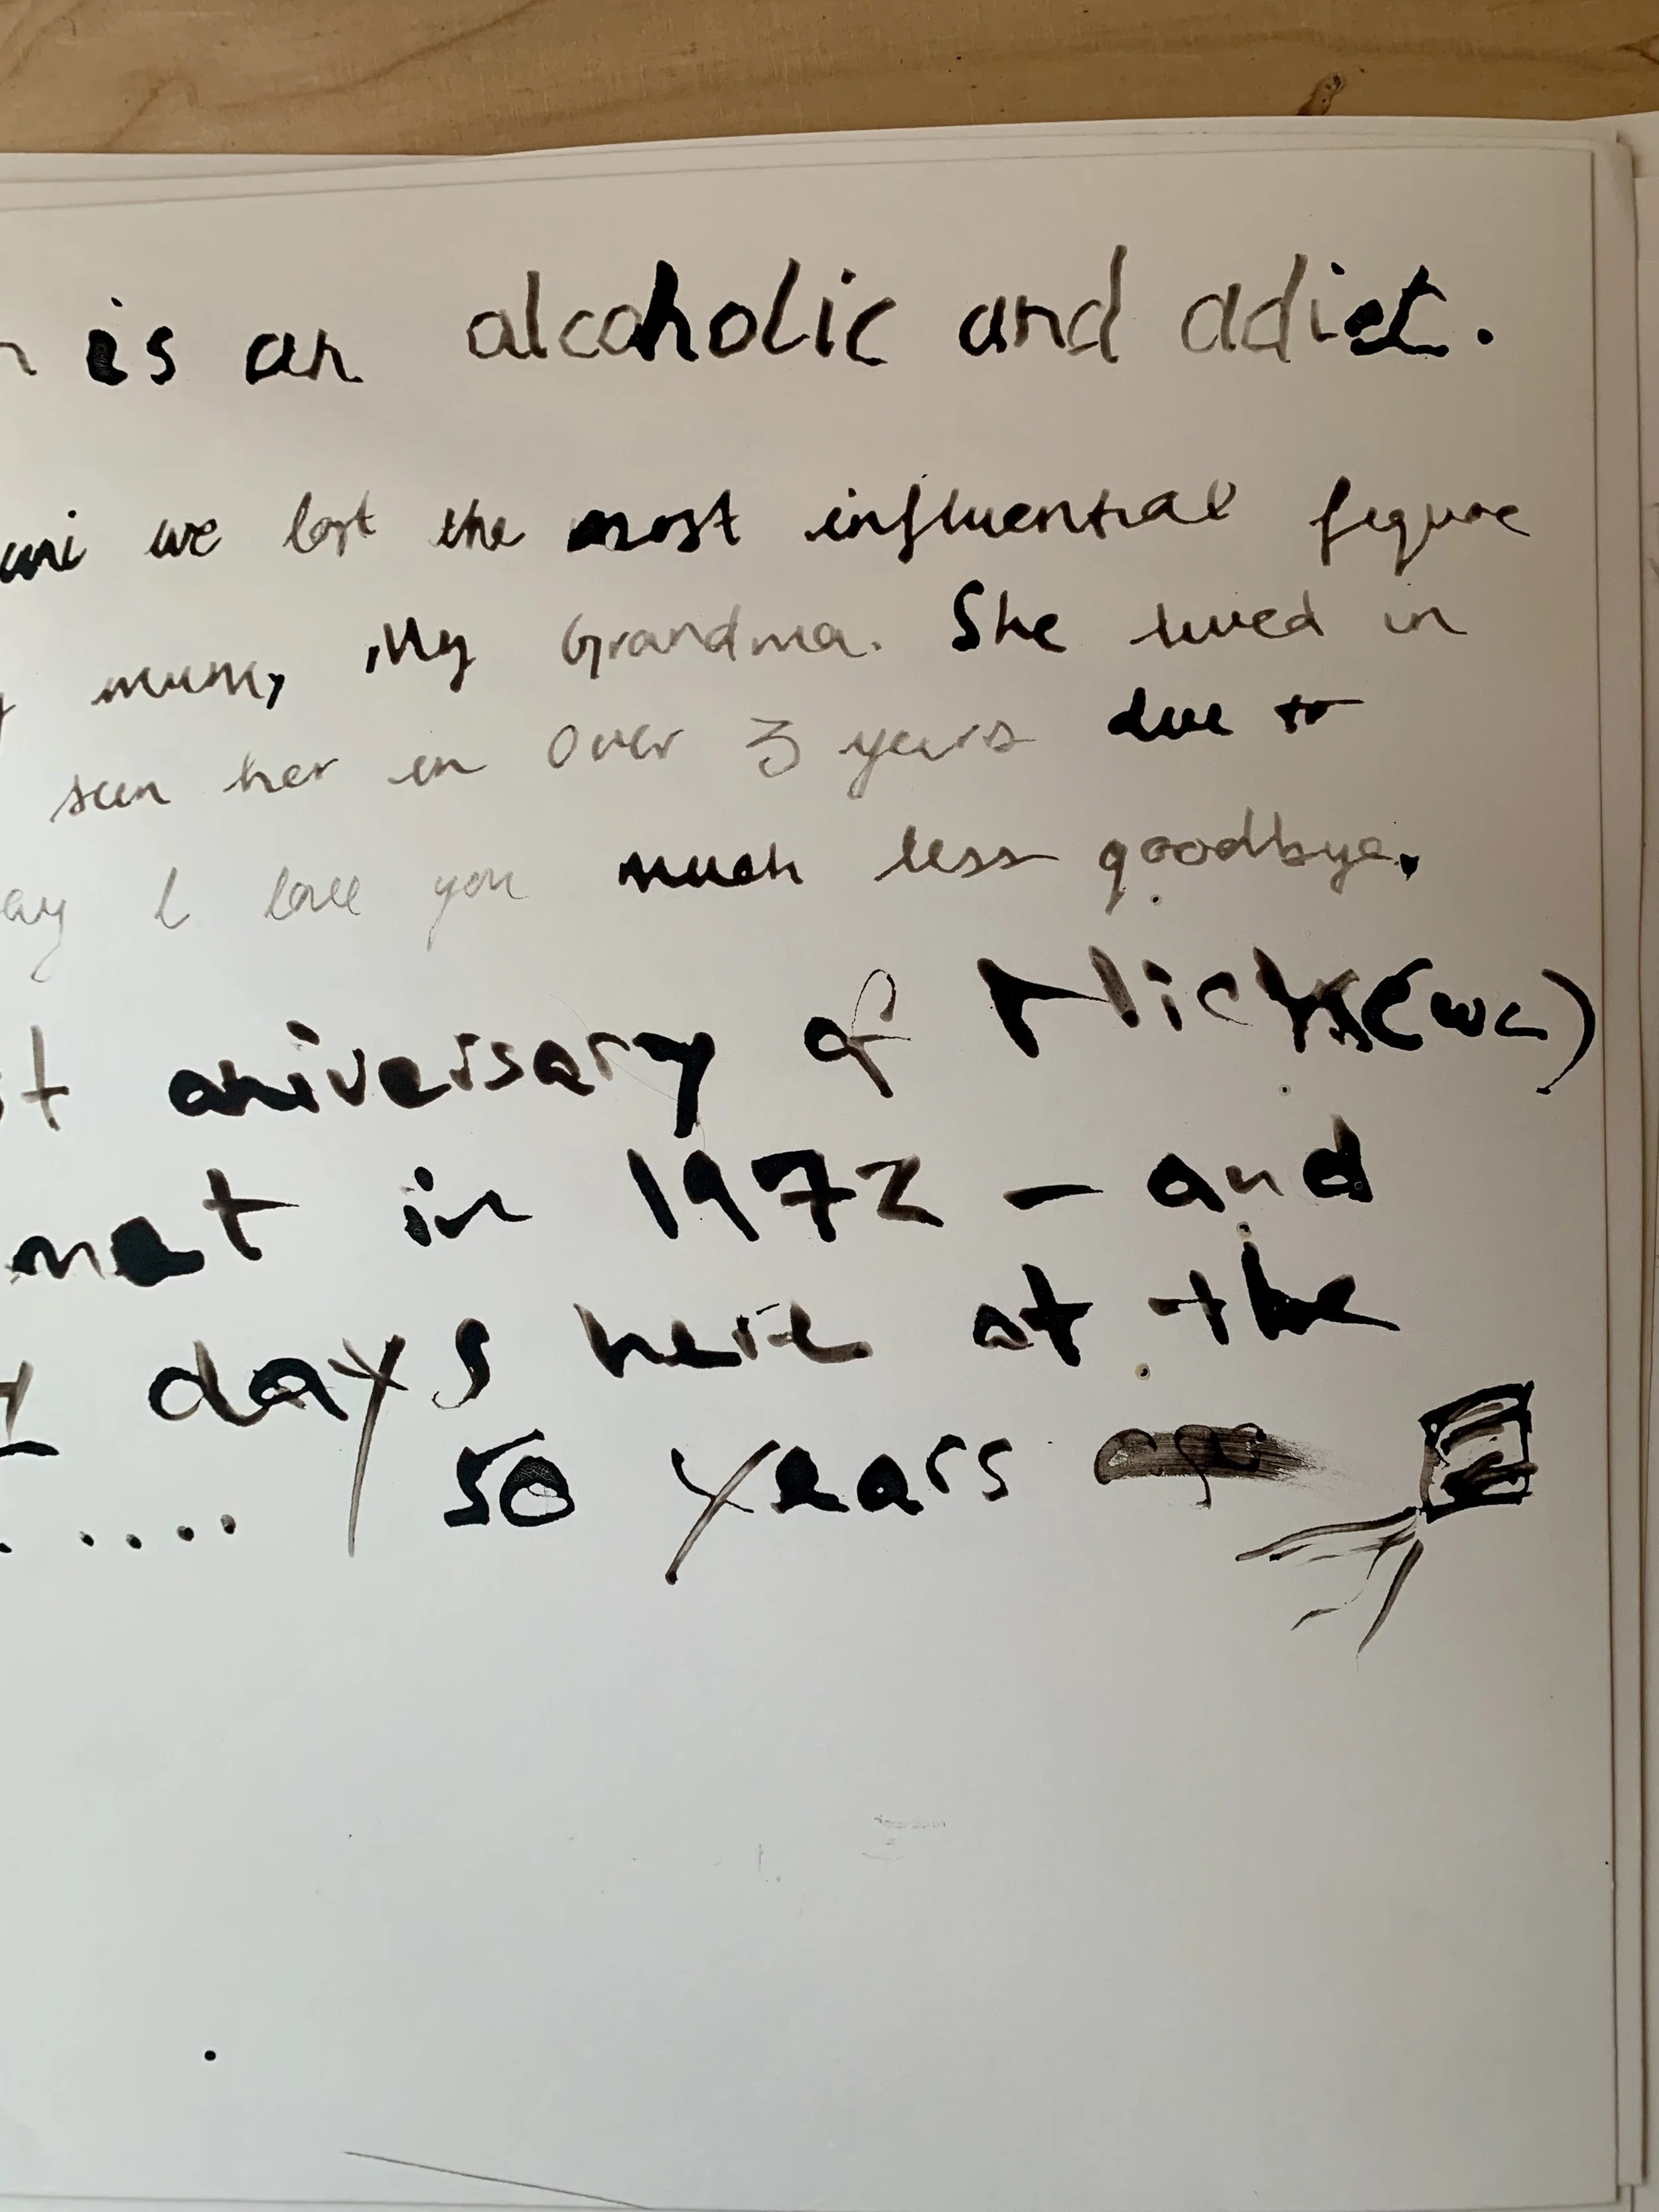 is an alcoholic and adict.
we lost the most influential figure
mum, My Grandma. She lived in
seen her in over 3 years due to
ay I love you much less goodbye.
aniversary of Nick's(wc)
met in 1972 - and
days here at the
..... 50 years